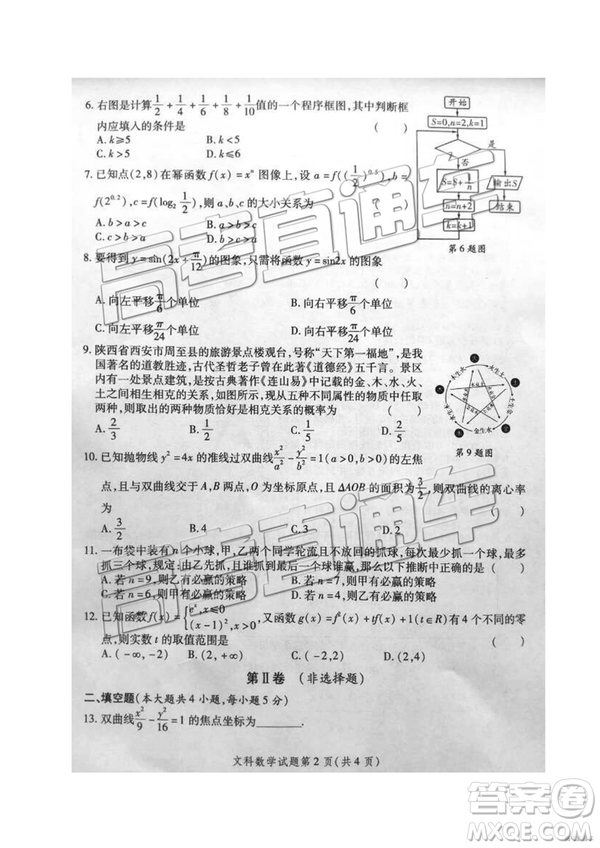 6. 右图是计算1/2+1/4+1/6+1/8+1/10值的一个程序框图,其中判断框
内应填入的条件是 ( )
A. k≥5 B. k<5
C. k>5 D. k≤6
开始
S=0,n=2,k=1
是
否
S=S+1/n
输出S
n=n+2
结束
k=k+1
第6题图
7. 已知点(2,8)在幂函数f(x)=xⁿ图像上,设a=f((1/2)^0.5),b=
f(2^0.2),c=f(log₂1/2),则a,b,c的大小关系为 ( )
A. b>a>c B. a>b>c
C. c>b>a D. b>c>a
8. 要得到y=sin(2x+π/12)的图象,只需将函数y=sin2x的图象
( )
A. 向左平移π/6个单位 B. 向右平移π/6个单位
C. 向左平移π/24个单位 D. 向右平移π/24个单位
9. 陕西省西安市周至县的旅游景点楼观台,号称“天下第一福地”,是我
国著名的道教圣地,古代圣哲老子曾在此著《道德经》五千言。景
区内有一处景点建筑,是按古典著作《连山易》中记载的金、木、水、火、
土之间相生相克的关系,如图所示,现从五种不同属性的物质中任取
两种,则取出的两种物质恰好是相克关系的概率为 ( )
A. 2/3 B. 1/2 C. 1/5 D. 1/3
金生水
第9题图
10. 已知抛物线y²=4x的准线过双曲线x²/a²-y²/b²=1(a>0,b>0)的左焦
点,且与双曲线交于A,B两点,O为坐标原点,且△AOB的面积为3/2,则双曲线的离心率
为 ( )
A. 3/2 B. 4 C. 3 D. 2
11. 一布袋中装有n个小球,甲,乙两个同学轮流且不放回的抓球,每次最少抓一个球,最多
抓三个球,规定:由乙先抓,且谁抓到最后一个球谁赢,那么以下推断中正确的是( )
A. 若n=9,则乙有必赢的策略 B. 若n=7,则甲有必赢的策略
C. 若n=6,则甲有必赢的策略 D. 若n=4,则乙有必赢的策略
12. 已知函数f(x)={eˣ,x≤0 (x-1)²,x>0,又函数g(x)=f²(x)+tf(x)+1(t∈R)有4个不同的零
点,则实数t的取值范围是 ( )
A. (-∞,-2) B. (2,+∞) C. (-2,2) D. (2,4)
第Ⅱ卷 (非选择题)
二、填空题(本大题共4小题,每小题5分)
13. 双曲线x²/9-y²/16=1的焦点坐标为______.
文科数学试题第2页(共4页)
高考直通车
高考直通车
答案圈
MXQE.COM